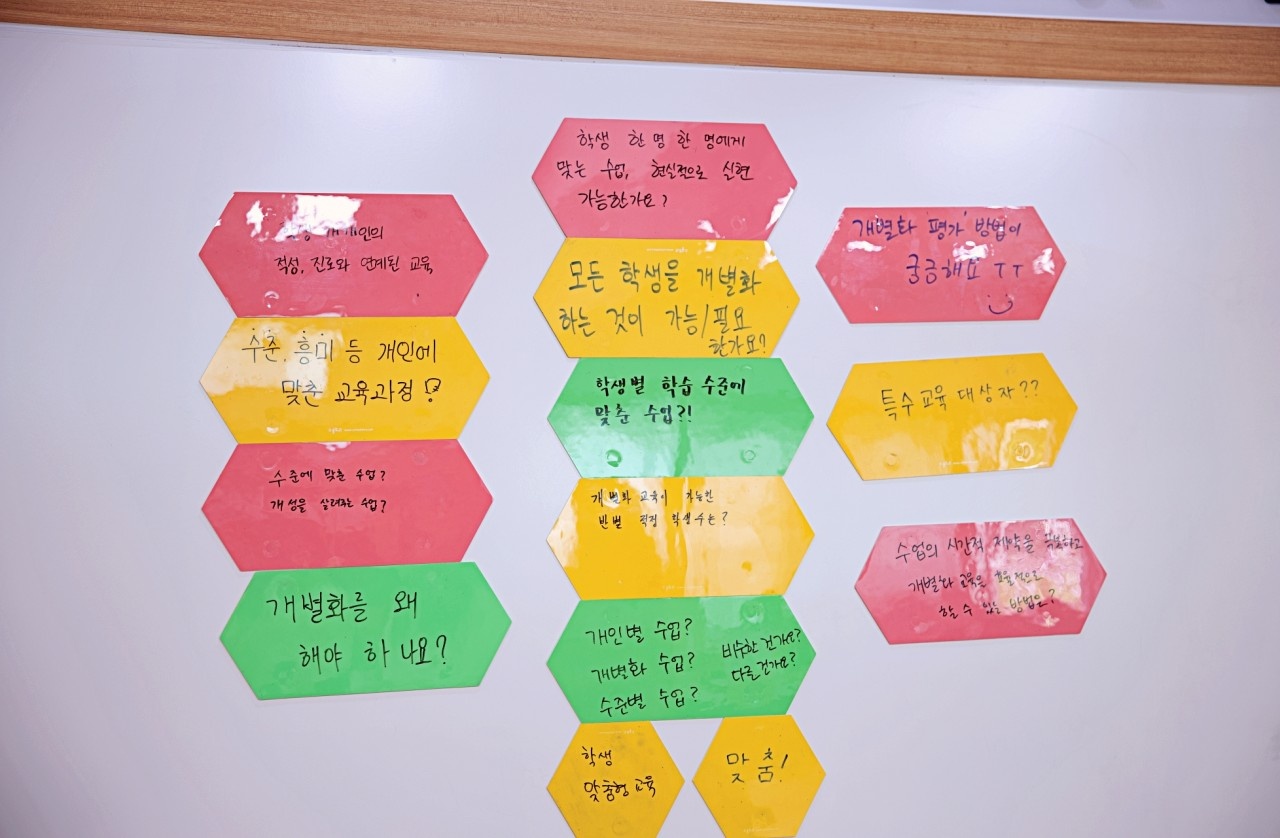 개인의
적성, 진로와 연계된 교육
수준, 흥미 등 개인에
맞춘 교육과정!
수준에 맞춘 수업?
개성을 살려주는 수업?
개별화를 왜
해야 하나요?
학생 한 명 한 명에게
맞는 수업, 현실적으로 실현
가능한가요?
모든 학생을 개별화
하는 것이 가능/필요
한가요?
학생별 학습 수준에
맞춘 수업?!
개별화 교육이 가능한
반별 적정 학생수는?
개인별 수업?
개별화 수업?
수준별 수업?
비슷한건가요?
다른건가요?
학생
맞춤형 교육
맞춤!
개별화 평가 방법이
궁금해요 ㅜㅜ
특수교육 대상자??
수업의 시간적 제약을 극복하고
개별화 교육을 효율적으로
할 수 있는 방법은?